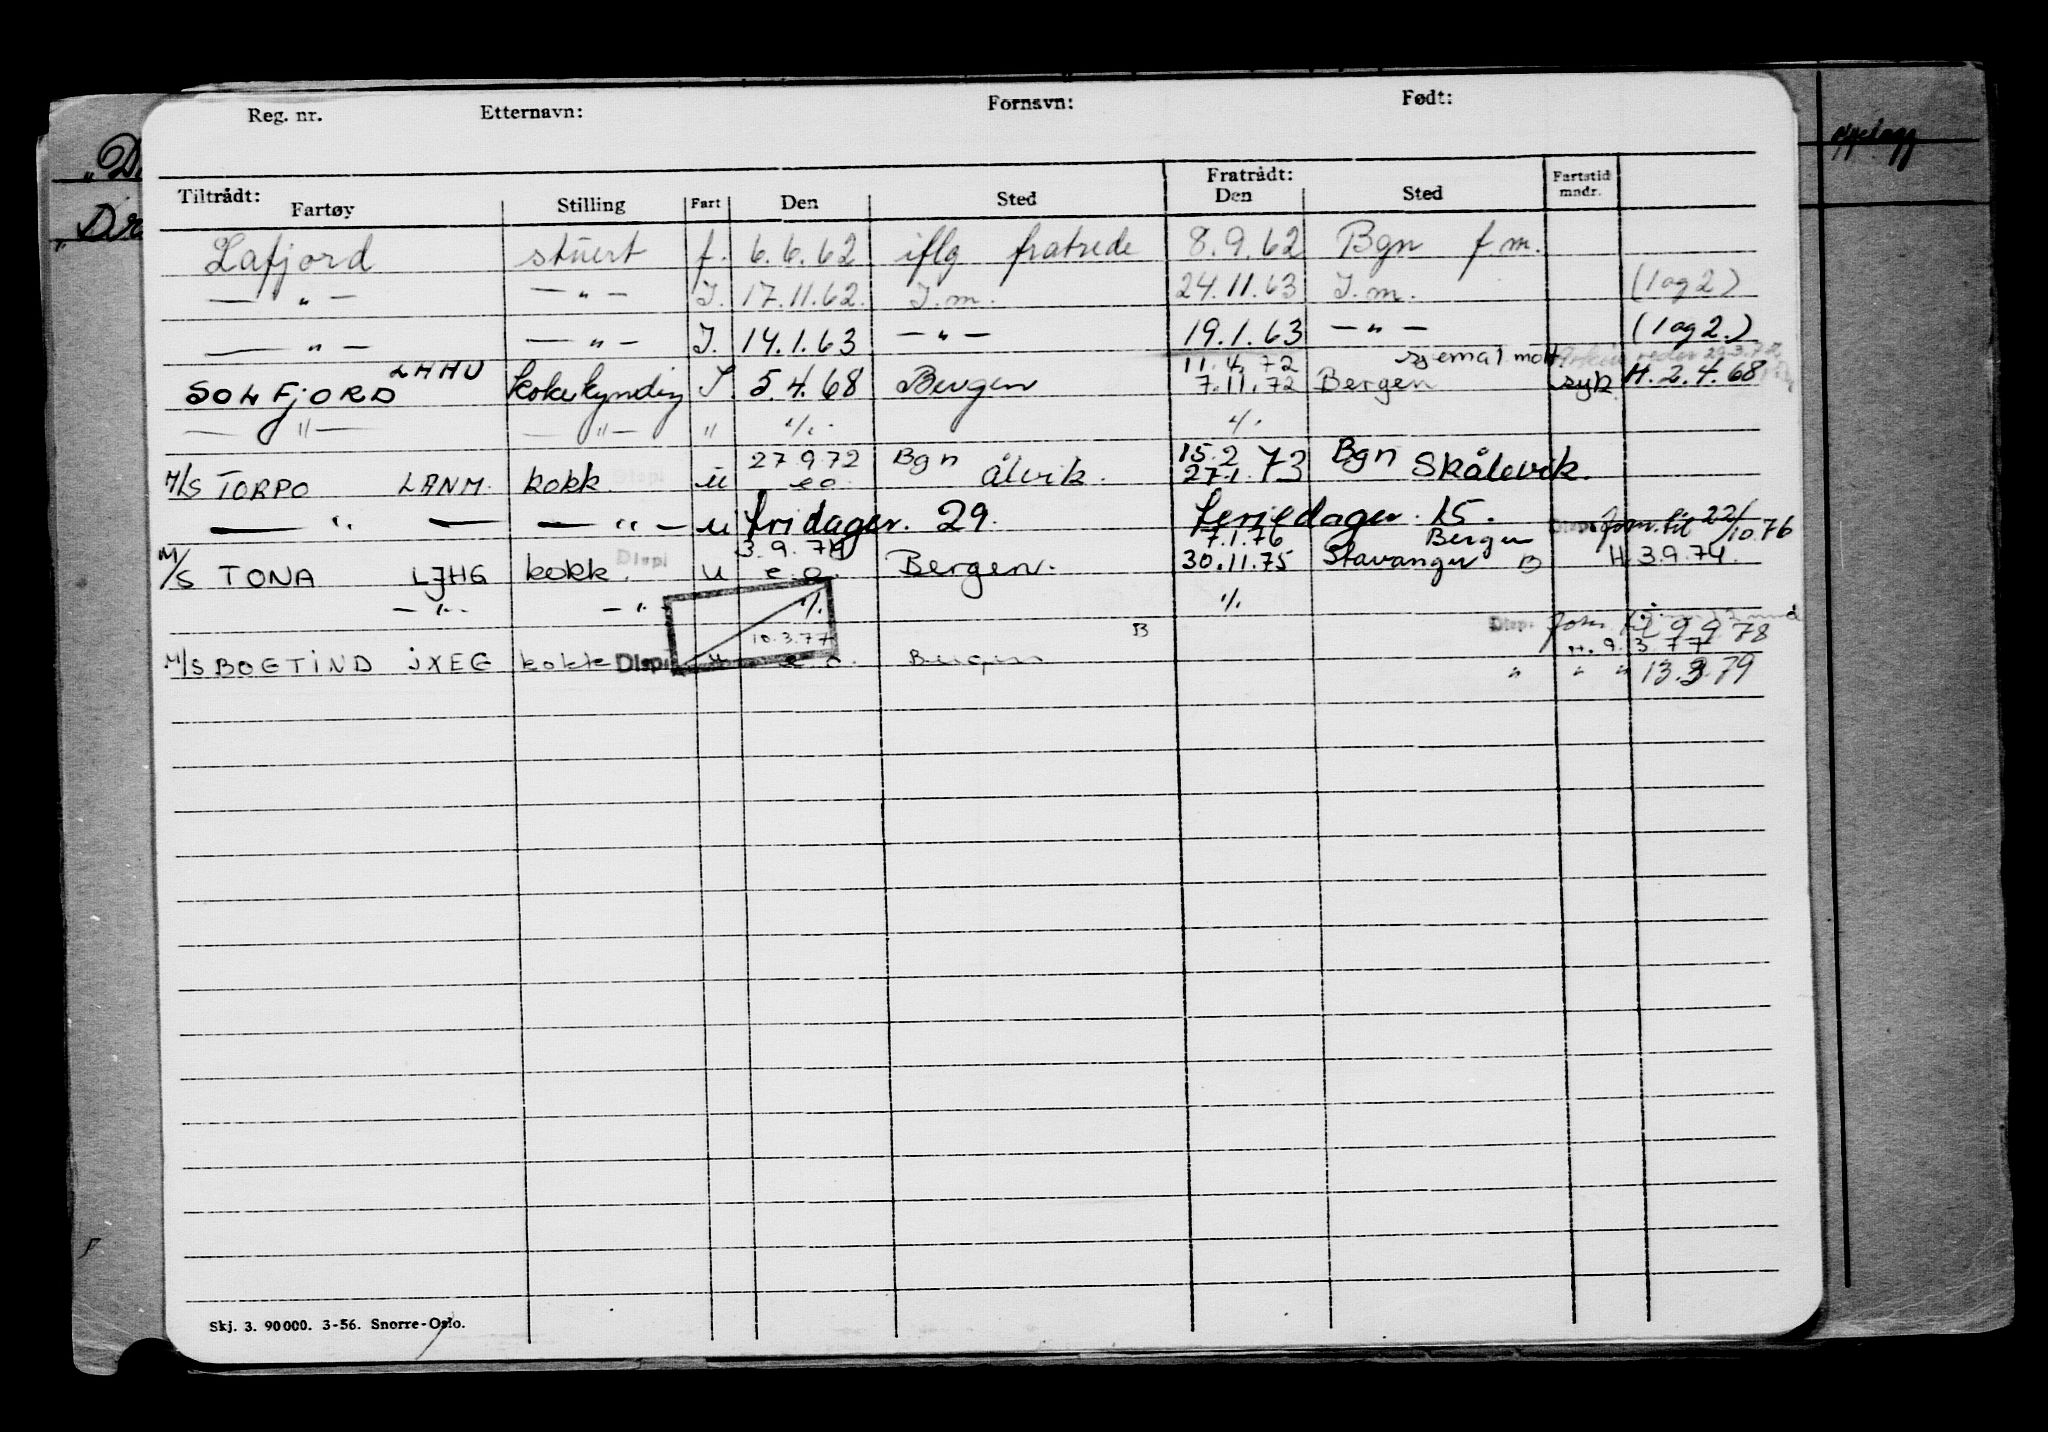 Reg. nr. Etternavn: Fornavn: Født:
Tiltrådt: Fratrådt:
Fartøy Stilling Fart Den Sted Den Sted Fartstid mndr.
Lafjord stuert f. 6.6.62 iflg fratrede 8.9.62 Bgn f.m.
— " — — " — I. 17.11.62. I.m. 24.11.63 I.m. (1 og 2)
— " — — " — I. 14.1.63 — " — 19.1.63 — " — (1 og 2.)
LHHU 11.4.72
SOLFJORD I. 5.4.68 Bergen 7.11.72 Bergen syk H. 2.4.68
— " — — " — " "/. "/.
27.9.72 Bgn 15.2 73 Bgn
M/S TORPO LANM. kokk Displ u eo. Ålvik. 27.1. Skålevik.
— " — — " — u fridager. 29. feriedager. 15. Disp. fom. til 22/10.76
3.9.74 7.1.76 Bergen
M/S TONA LJHG kokk. Displ u e.o. Bergen. 30.11.75 Stavanger B H. 3.9.74.
— " — — " "/. "/.
10.3.77 B Disp. 9 9 78
H. 9.3.77
M/S BOETIND JXEG kokk Displ u e o. Bergen
" " " 13.3.79
Skj. 3. 90000. 3-56. Snorre-Oslo.